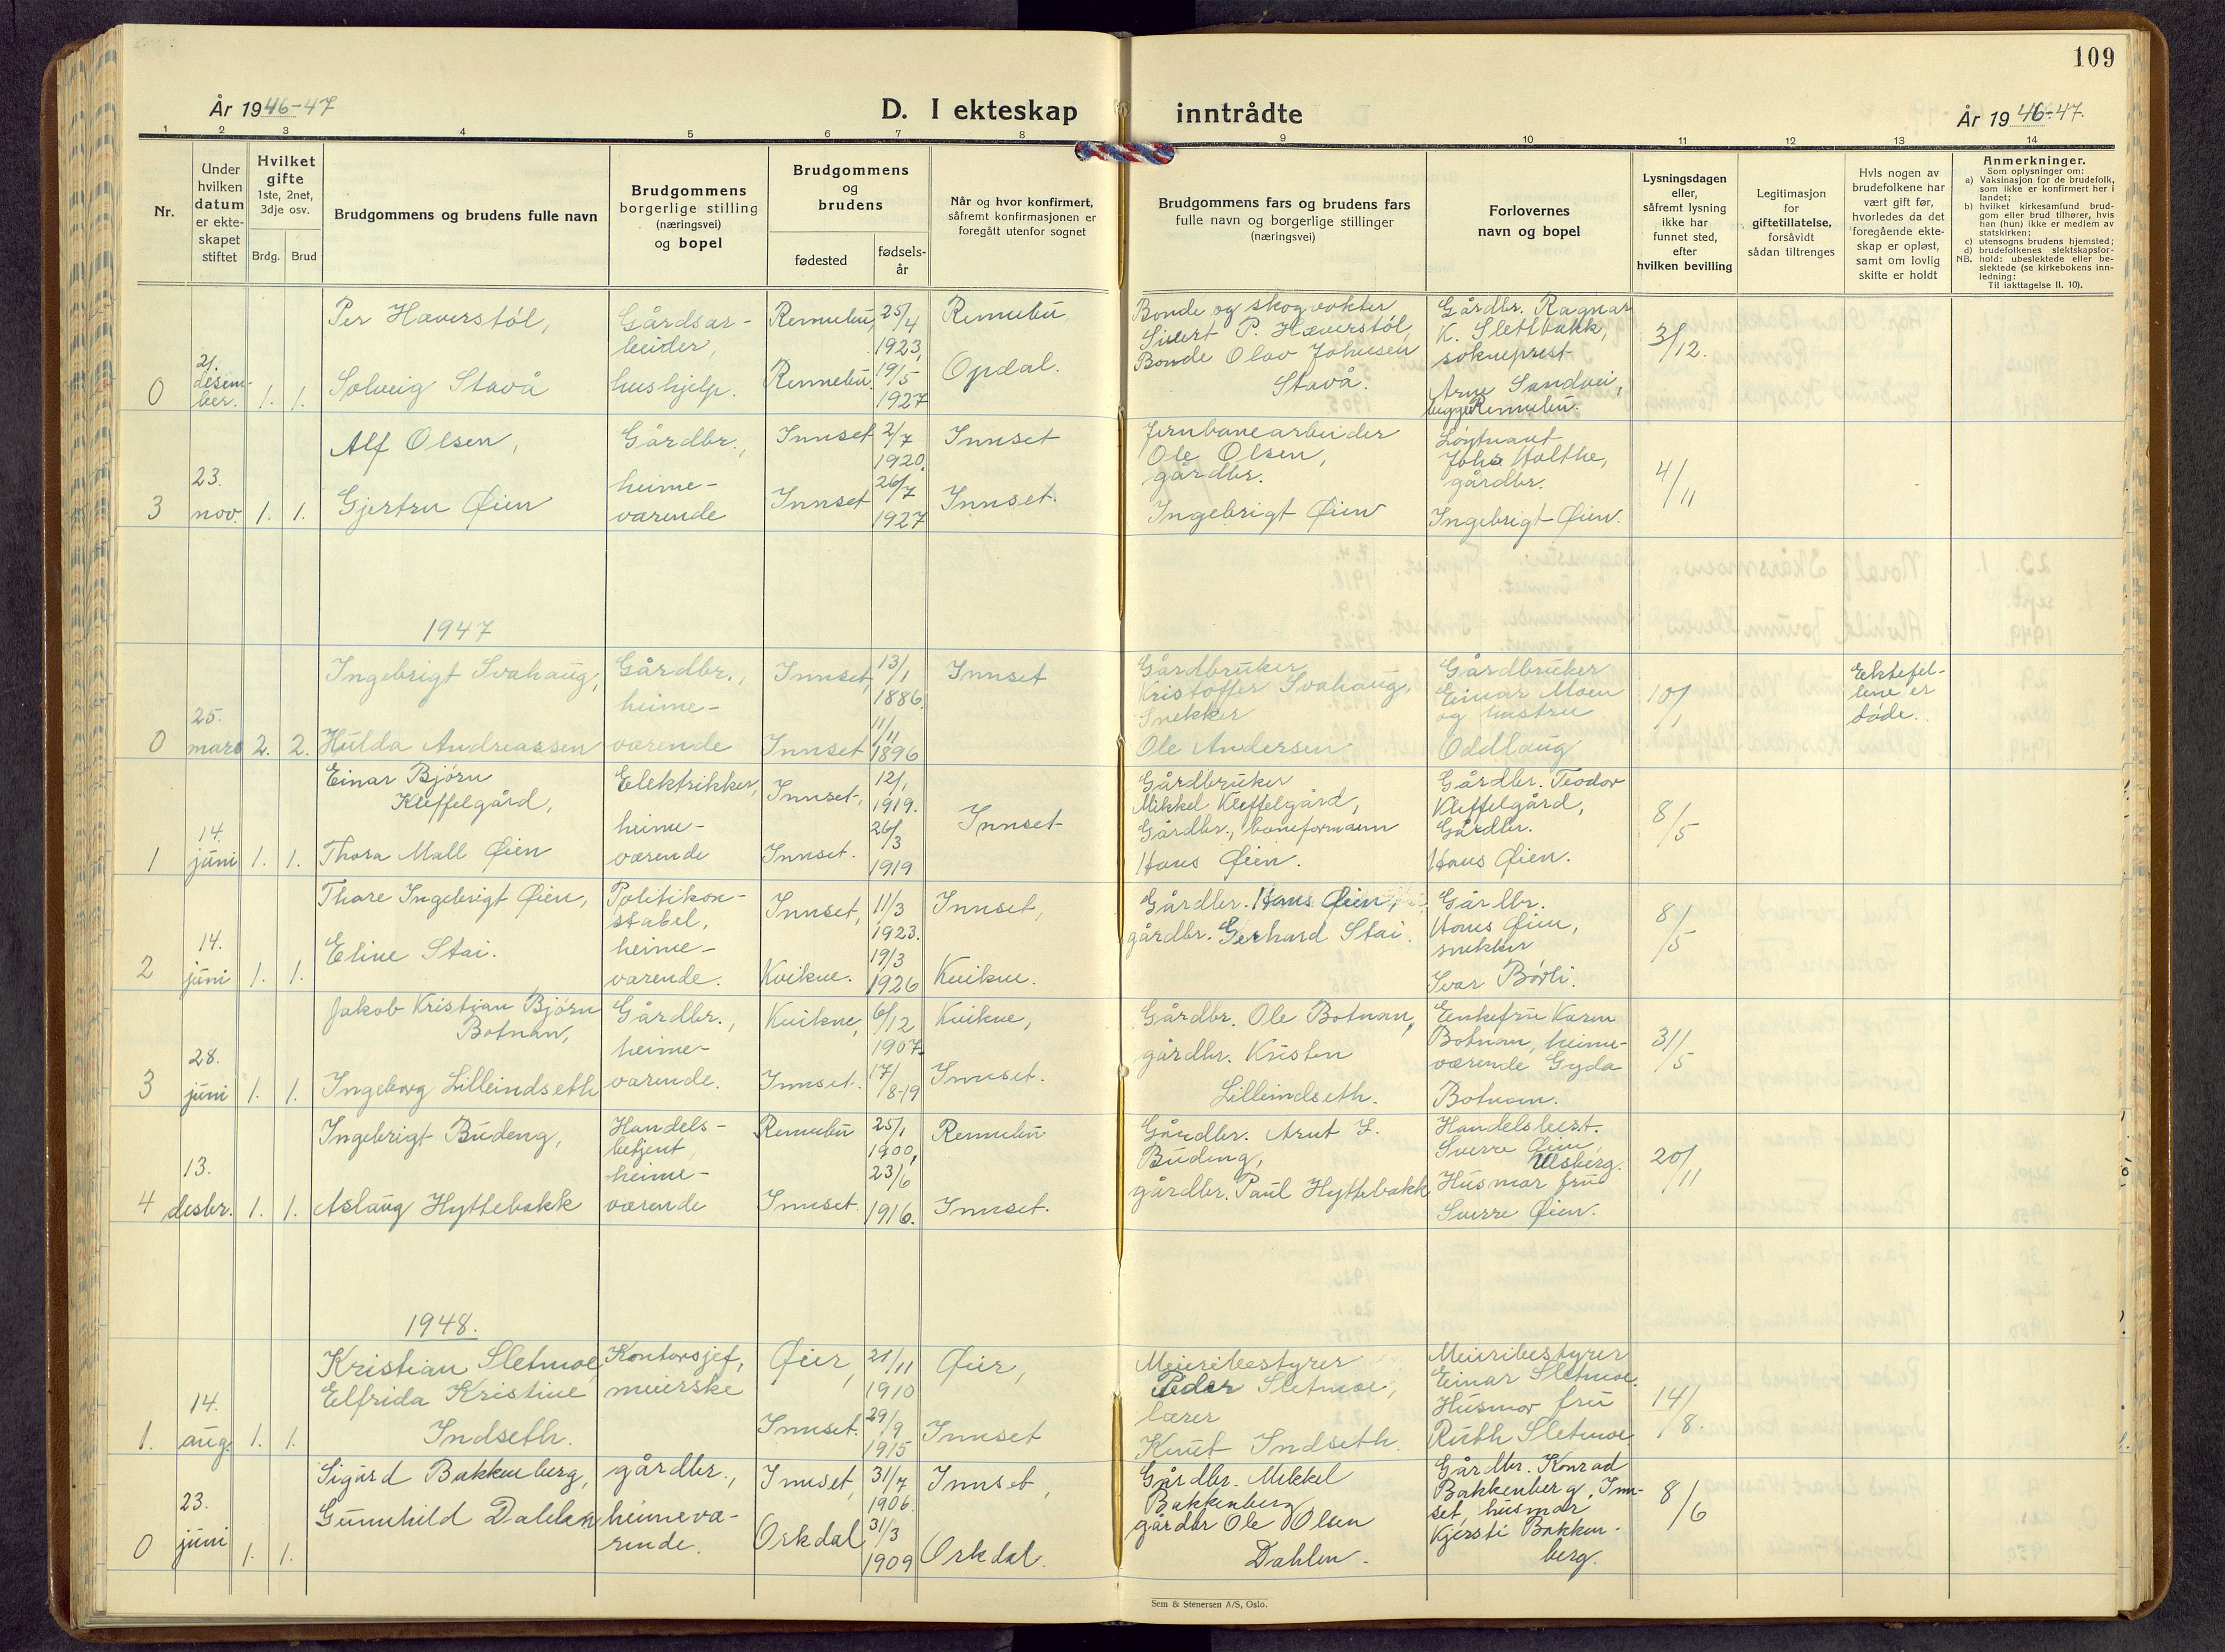 109
År 1946-47
D. I ekteskap inntrådte
År 1946-47.
1 2 3 4 5 6 7 8 9 10 11 12 13 14
Nr.
Under
hvilken
datum
er ekte-
skapet
stiftet
Hvilket
gifte
1ste, 2net,
3dje osv.
Brdg. Brud
Brudgommens og brudens fulle navn
Brudgommens
borgerlige stilling
(næringsvei)
og bopel
Brudgommens
og
brudens
fødested
fødsels-
år
Når og hvor konfirmert,
såfremt konfirmasjonen er
foregått utenfor sognet
Brudgommens fars og brudens fars
fulle navn og borgerlige stillinger
(næringsvei)
Forlovernes
navn og bopel
Lysningsdagen
eller,
såfremt lysning
ikke har
funnet sted,
efter
hvilken bevilling
Legitimasjon
for
giftetillatelse,
forsåvidt
sådan tiltrenges
Hvis nogen av
brudefolkene har
vært gift før,
hvorledes da det
foregående ekte-
skap er opløst,
samt om lovlig
skifte er holdt
Anmerkninger.
Som oplysninger om:
a) Vaksinasjon for de brudefolk,
som ikke er konfirmert her i
landet;
b) hvilket kirkesamfund brud-
gom eller brud tilhører, hvis
han (hun) ikke er medlem av
statskirken;
c) utensogns brudens hjemsted;
d) brudefolkenes slektskapsfor-
hold: ubeslektede eller be-
slektede (se kirkebokens inn-
ledning:
NB.
Til iakttagelse II. 10).
0
21.
desem-
ber.
1. 1.
Per Haverstøl,
Solveig Stavå
Gårdsar-
beider,
hushjelp.
Rennebu,
Rennebu.
25/4
1923,
19/5
1927
Rennebu,
Opdal.
Bonde og skogvokter
Sivert P. Hæverstøl,
Bonde Olav Johnsen
Stavå.
Gårdbr. Ragnar
K. Slettbakk,
sokneprest
Arne Sandvei,
begge Rennebu.
3/12.
3
23.
nov.
1. 1.
Alf Olsen,
Gjertru Øien
Gårdbr.,
heime-
værende
Innset
Innset
2/7
1920.
26/7
1927
Innset
Innset.
Jernbanearbeider
Ole Olsen,
gårdbr.
Ingebrigt Øien
Løytnant
Johs Holthe,
gårdbr.
Ingebrigt Øien.
4/11
1947
0
25.
mars
2. 2.
Ingebrigt Svahaug,
Hulda Andreassen
Gårdbr.,
heime-
værende
Innset,
Innset
13/1
1886.
11/11
1896
Innset
Gårdbruker
Kristoffer Svahaug,
Snekker
Ole Andersen
Gårdbruker
Einar Moen
og hustru
Oddlaug
10/1
Ektefel-
lene er
døde.
1
14.
juni
1. 1.
Einar Bjørn
Kleffelgård,
Thora Mall Øien
Elektrikker,
heime-
værende
Innset,
Innset.
12/1
1919.
26/3
1919
Innset
Gårdbruker
Mikkel Kleffelgård,
Gårdbr., baneformann
Hans Øien.
Gårdbr. Teodor
Kleffelgård,
Gårdbr.
Hans Øien.
8/5
2
14.
juni
1. 1.
Thore Ingebrigt Øien,
Eline Stai.
Politikon-
stabel,
heime-
værende.
Innset,
Kvikne.
11/3
1923.
19/3
1926
Innset,
Kvikne.
Gårdbr. Hans Øien,
gårdbr. Gerhard Stai.
Gårdbr.
Hans Øien,
snekker
Ivar Børli.
8/5
3
28.
juni
1. 1.
Jakob Kristian Bjørn
Botnan,
Ingeborg Lilleindseth
Gårdbr.,
heime-
værende.
Kvikne,
Innset.
6/12
1907.
17/8-19
Kvikne,
Innset.
Gårdbr. Ole Botnan,
gårdbr. Kristen
Lilleindseth.
Enkefru Karen
Botnan, heime-
værende Gyda
Botnan.
31/5
4
13.
desbr.
1. 1.
Ingebrigt Budeng,
Aslaug Hyttebakk
Handels-
betjent,
heime-
værende
Rennebu
Innset.
25/1
1900,
23/6
1916.
Rennebu
Innset.
Gårdbr. Arnt L.
Budeng,
gårdbr. Paul Hyttebakk
Handelsbest.
Sverre Øien,
Ulsberg.
Husmor fru
Sverre Øien.
20/11
1948.
1.
14.
aug.
1. 1.
Kristian Sletmoe,
Elfrida Kristine
Indseth.
Kontorsjef,
meierske
Øier,
Innset.
21/11
1910
29/9
1915
Øier,
Innset
Meieribestyrer
Peder Sletmoe,
lærer
Knut Indseth.
Meieribestyrer
Einar Sletmoe.
Husmor fru
Ruth Sletmoe.
14/8.
0
23.
juni
1. 1.
Sigurd Bakkenberg,
Gunnhild Dahlen
gårdbr.,
heimevæ-
rende.
Innset,
Orkdal
31/7
1906.
31/3
1909
Innset,
Orkdal.
Gårdbr. Mikkel
Bakkenberg
gårdbr Ole Olsen
Dahlen.
Gårdbr. Konrad
Bakkenberg, Inn-
set, husmor
Kjersti Bakken-
berg.
8/6
Sem & Stenersen A/S, Oslo.